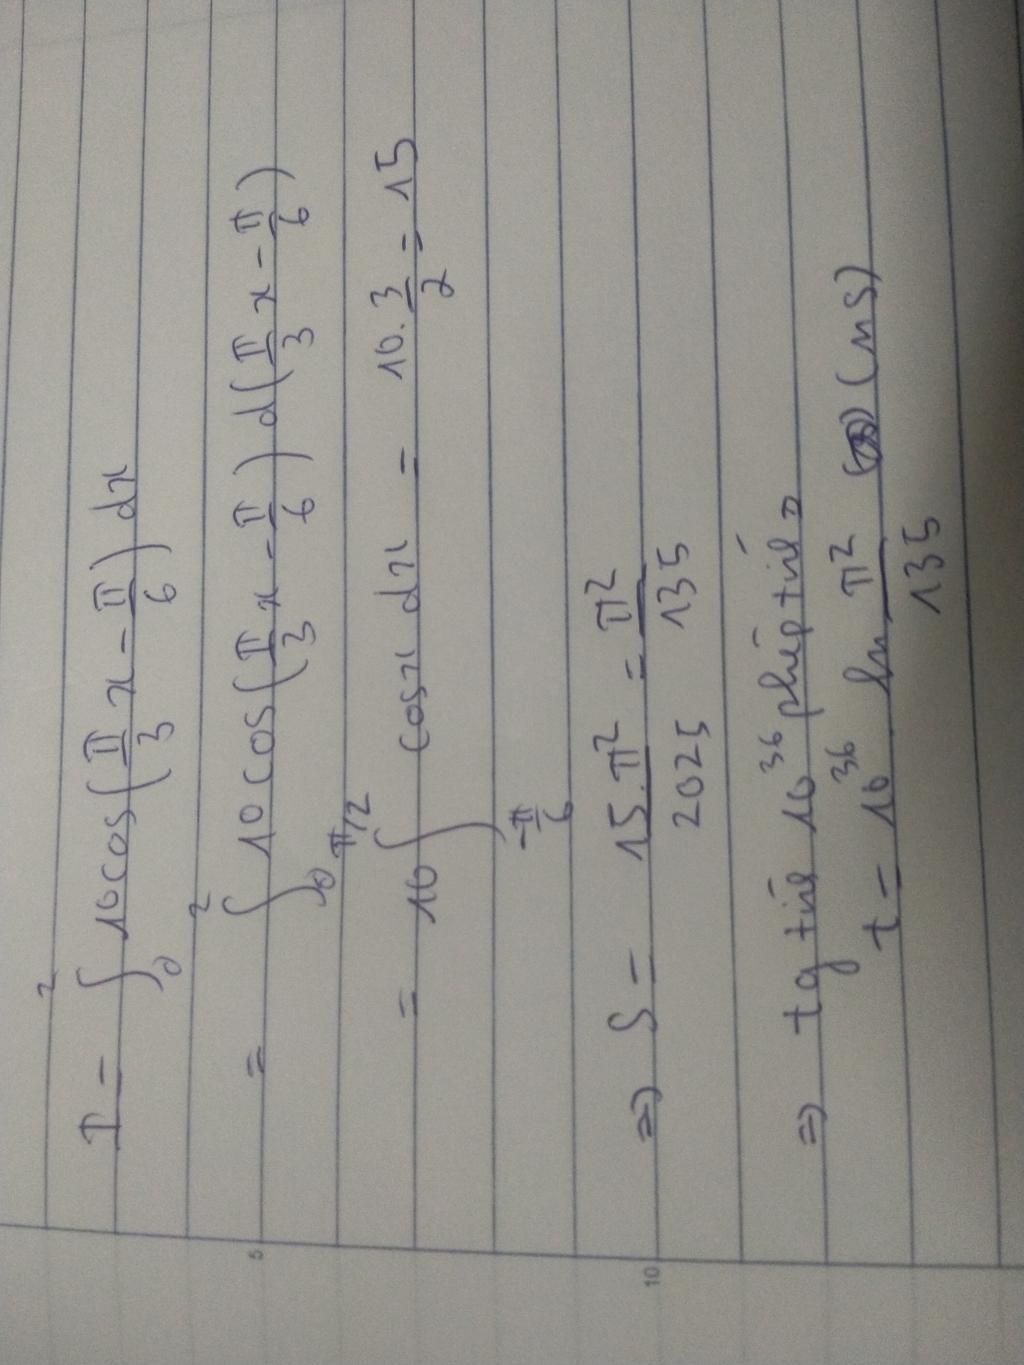 I = ∫₀² 10cos(π/3 x - π/6) dx
= ∫₀² 10cos(π/3 x - π/6) d(π/3 x - π/6)
= 10 ∫_{-π/6}^{π/2} cosx dx = 10. 3/2 = 15
=> S = 15.π²/2025 = π²/135
=> tg tính 10³⁶ phép tính
t = 10³⁶ ln π²/135 (ns)
5
10